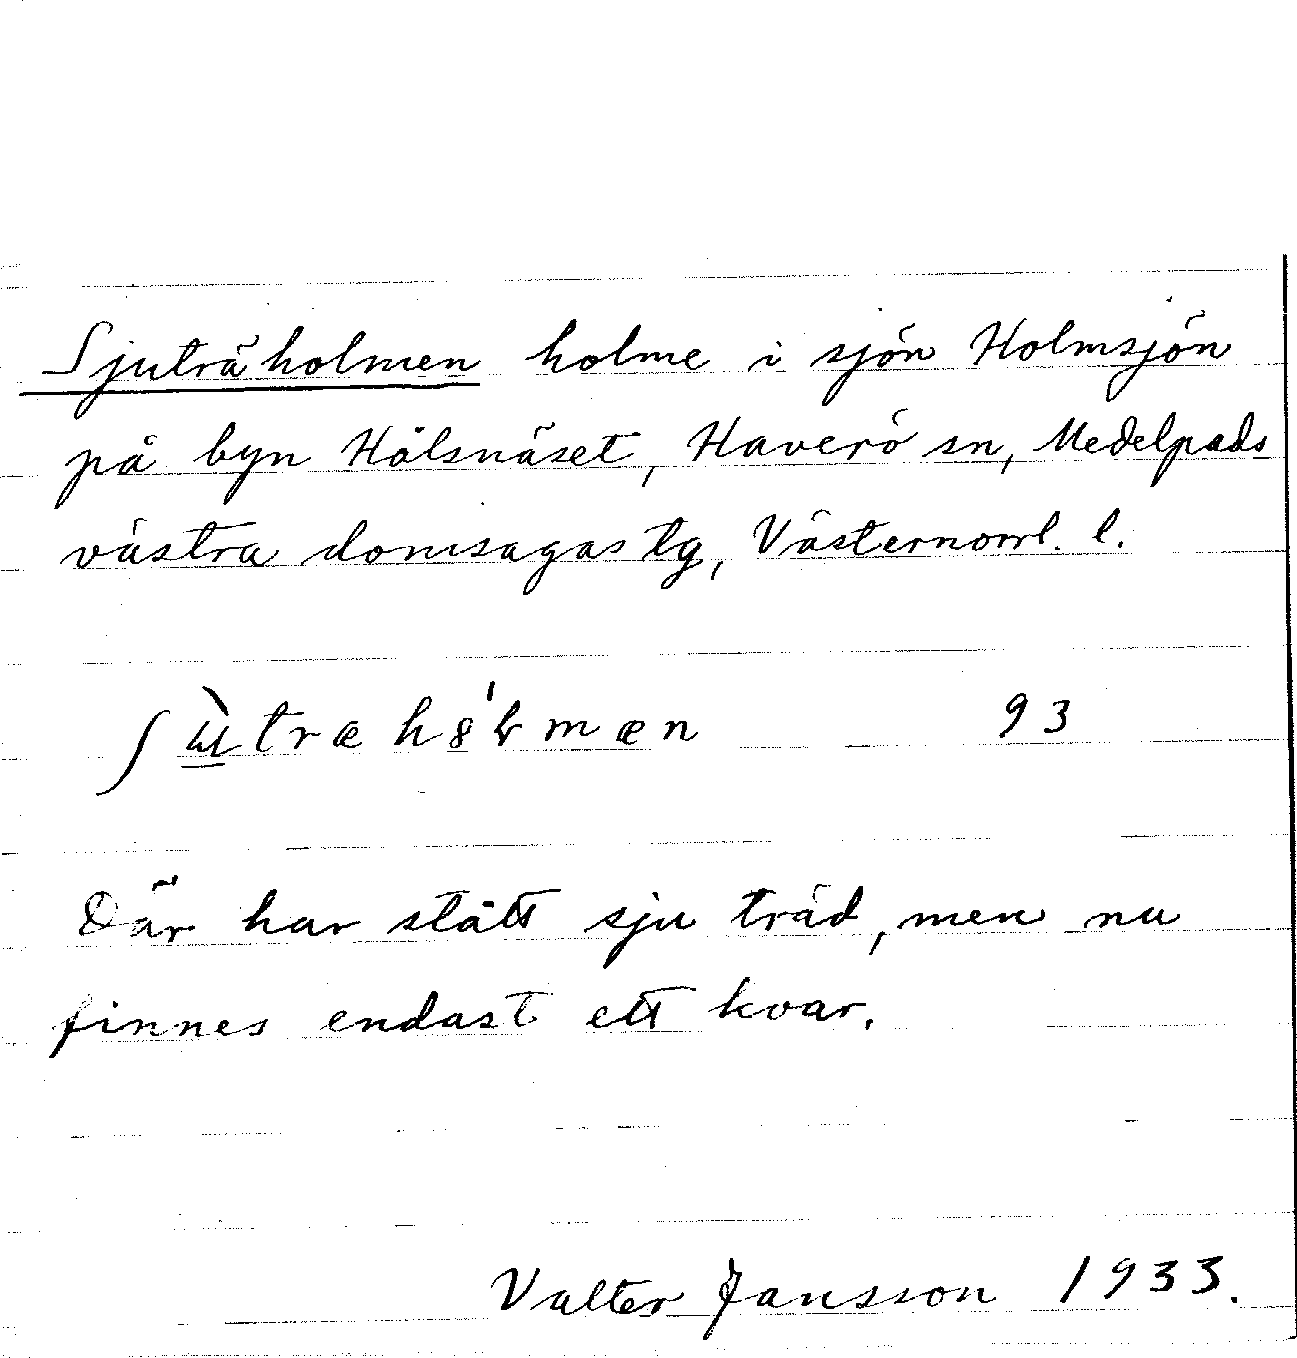 Sjuträholmen holme i sjön Holmsjön
på byn Hålsnäset, Haverö sn, Medelpads
västra domsagas tg, Västernorrl. l.
93
Där har stått sju träd, men nu
finnes endast ett kvar.
Valter Jansson 1933.